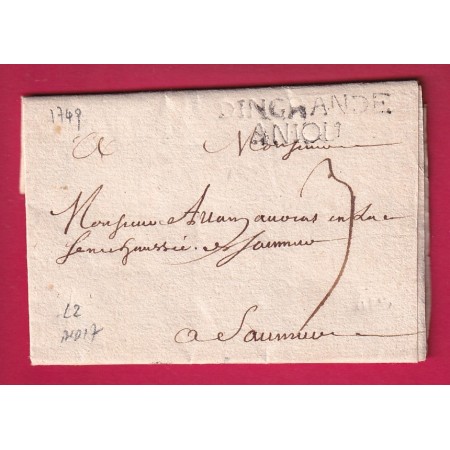 1749
DINGRANDE
ANJOU
A Monsieur
Monsieur avocat en la
Senechaussée de Saumur
3
L2
a Saumur